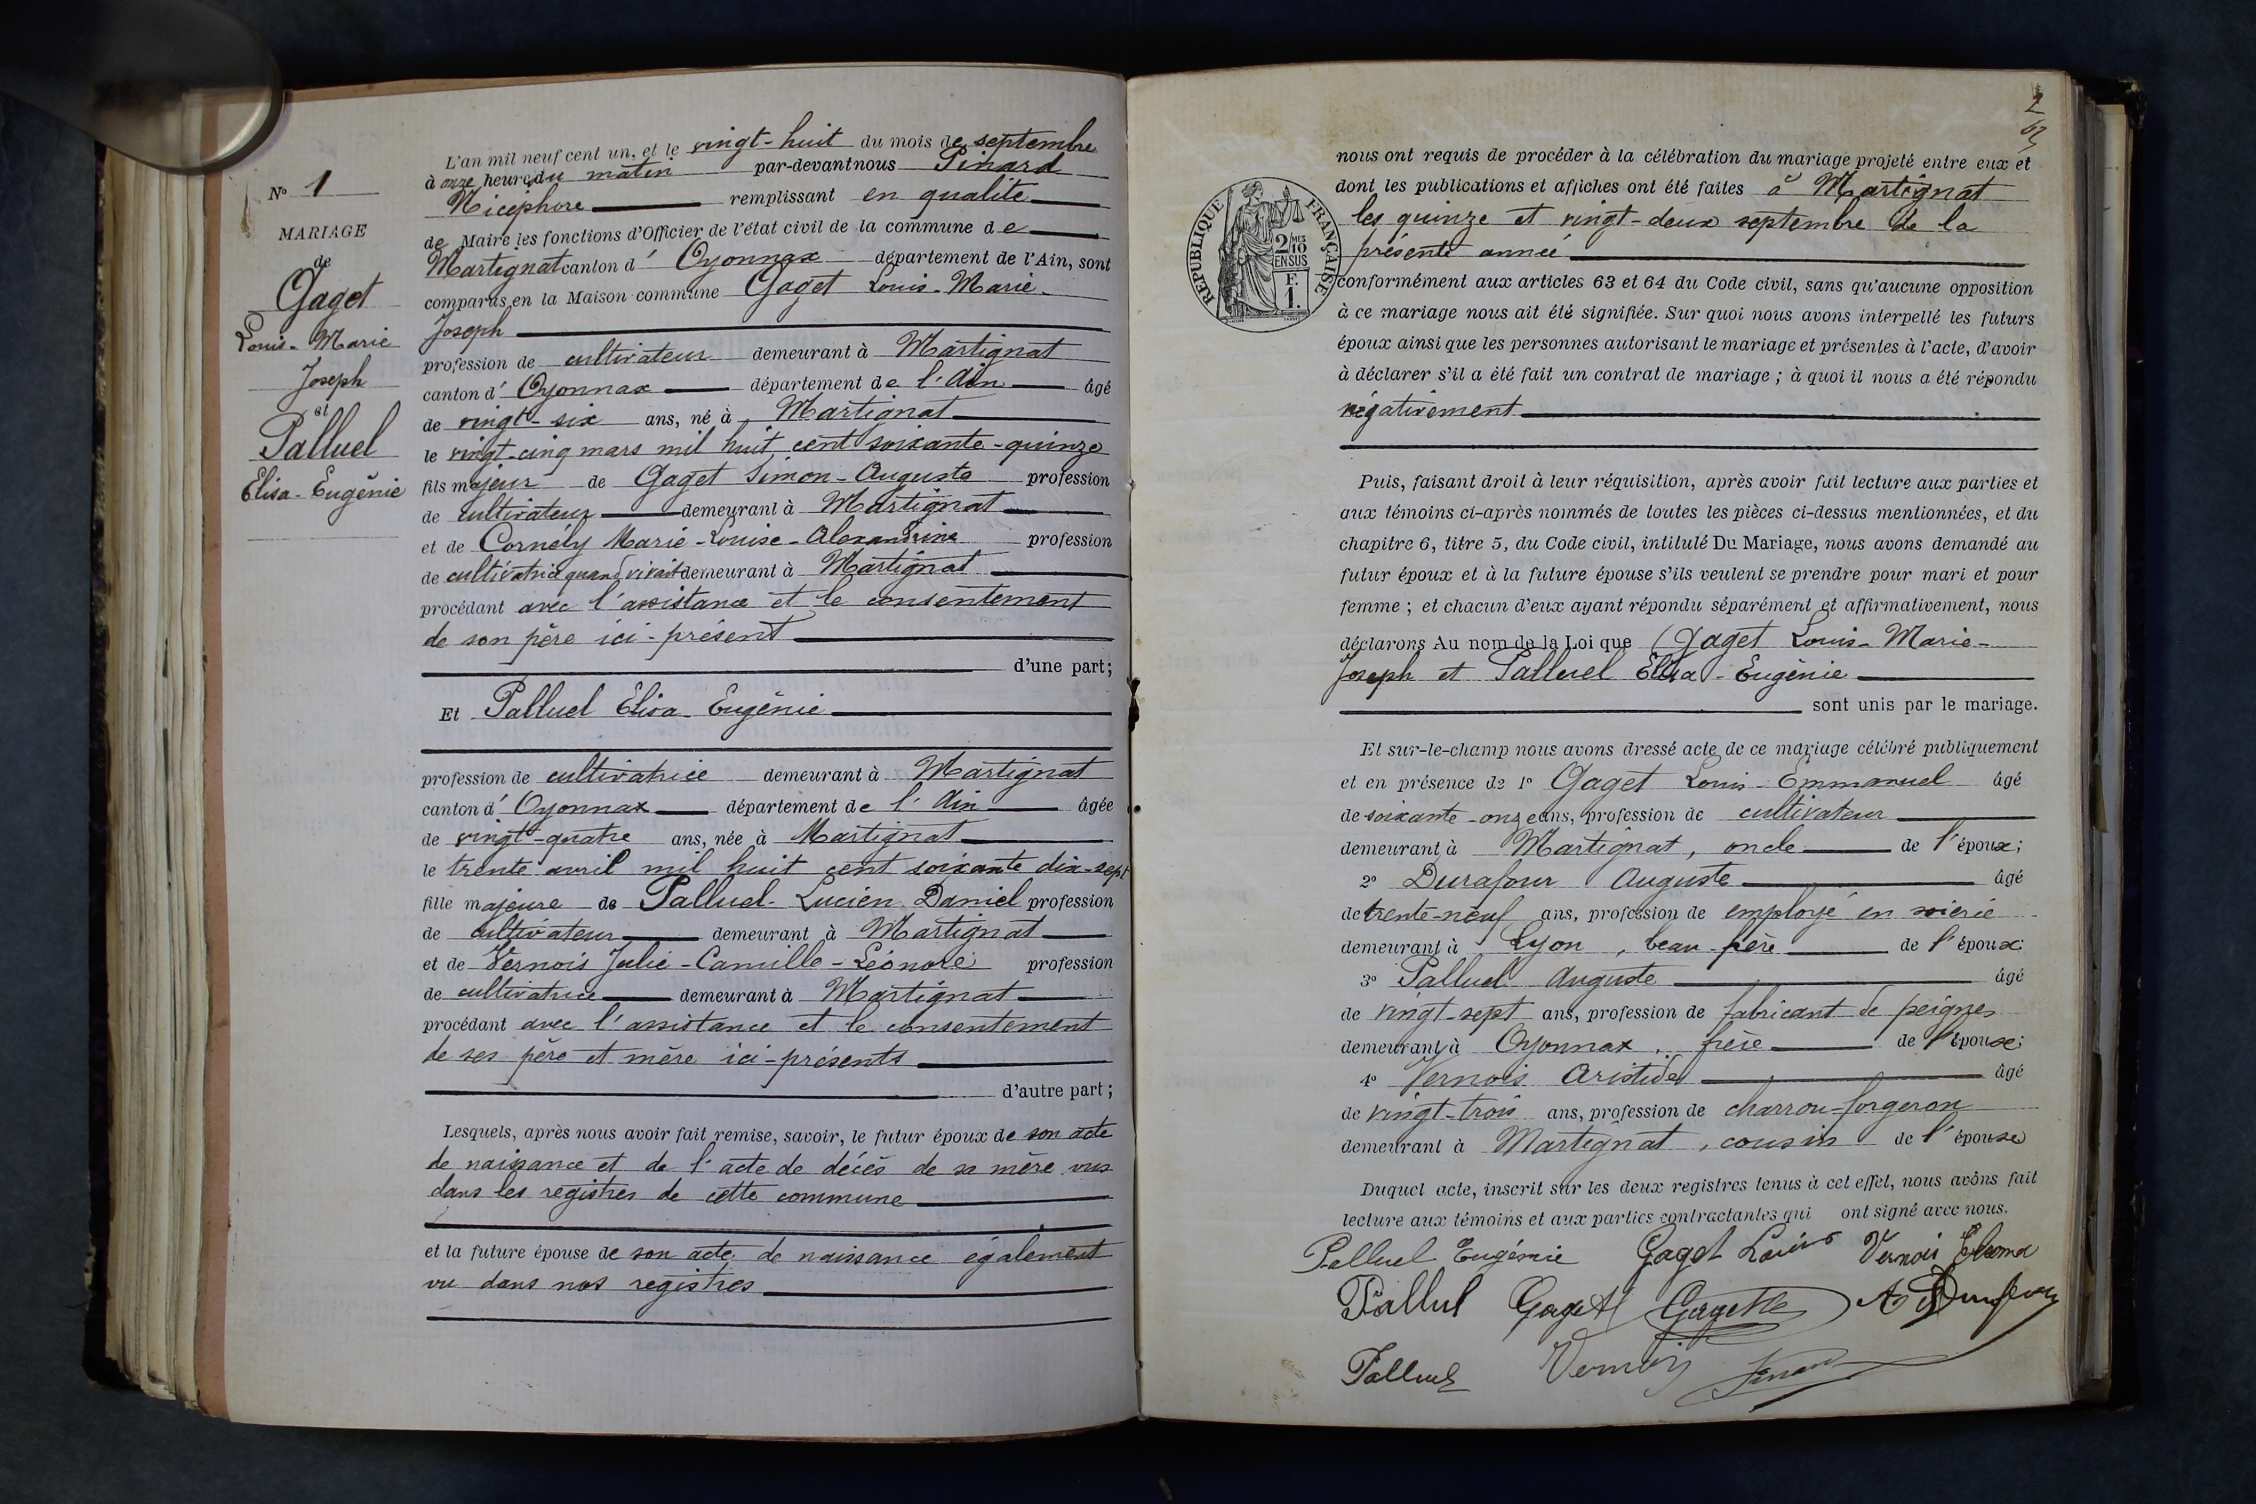 N° 1
MARIAGE
de
Gaget
Louis-Marie
Joseph
et
Palluel
Elisa-Eugénie
L'an mil neuf cent un, et le vingt-huit du mois de septembre
à onze heures du matin par-devant nous Pinard
Nicéphore remplissant en qualité
de Maire les fonctions d'Officier de l'état civil de la commune de
Martignat canton d'Oyonnax département de l'Ain, sont
comparus en la Maison commune Gaget Louis-Marie-
Joseph
profession de cultivateur demeurant à Martignat
canton d'Oyonnax département de l'Ain âgé
de vingt-six ans, né à Martignat
le vingt-cinq mars mil huit cent soixante-quinze
fils majeur de Gaget Simon-Auguste profession
de cultivateur demeurant à Martignat
et de Cornély Marie-Louise-Alexandrine profession
de cultivatrice quand vivait demeurant à Martignat
procédant avec l'assistance et le consentement
de son père ici-présent
d'une part;
Et Palluel Elisa-Eugénie
profession de cultivatrice demeurant à Martignat
canton d'Oyonnax département de l'Ain âgée
de vingt-quatre ans, née à Martignat
le trente avril mil huit cent soixante dix-sept
fille majeure de Palluel-Lucien Daniel profession
de cultivateur demeurant à Martignat
et de Vernois Julie-Camille-Léonore profession
de cultivatrice demeurant à Martignat
procédant avec l'assistance et le consentement
de ses père et mère ici-présents
d'autre part;
Lesquels, après nous avoir fait remise, savoir, le futur époux de son acte
de naissance et de l'acte de décès de sa mère vus
dans les registres de cette commune
et la future épouse de son acte de naissance également
vu dans nos registres
2
RÉPUBLIQUE FRANÇAISE
2/10 MES
EN SUS
F.
1.
nous ont requis de procéder à la célébration du mariage projeté entre eux et
dont les publications et affiches ont été faites à Martignat
les quinze et vingt-deux septembre de la
présente année
conformément aux articles 63 et 64 du Code civil, sans qu'aucune opposition
à ce mariage nous ait été signifiée. Sur quoi nous avons interpellé les futurs
époux ainsi que les personnes autorisant le mariage et présentes à l'acte, d'avoir
à déclarer s'il a été fait un contrat de mariage; à quoi il nous a été répondu
négativement
Puis, faisant droit à leur réquisition, après avoir fait lecture aux parties et
aux témoins ci-après nommés de toutes les pièces ci-dessus mentionnées, et du
chapitre 6, titre 5, du Code civil, intitulé Du Mariage, nous avons demandé au
futur époux et à la future épouse s'ils veulent se prendre pour mari et pour
femme; et chacun d'eux ayant répondu séparément et affirmativement, nous
déclarons Au nom de la Loi que Gaget Louis-Marie-
Joseph et Palluel Elisa-Eugénie
sont unis par le mariage.
Et sur-le-champ nous avons dressé acte de ce mariage célébré publiquement
et en présence de 1° Gaget Louis-Emmanuel âgé
de soixante-onze ans, profession de cultivateur
demeurant à Martignat, oncle de l'époux;
2° Durafour Auguste âgé
de trente-neuf ans, profession de employé en soierie
demeurant à Lyon, beau-frère de l'époux;
3° Palluel Auguste âgé
de vingt-sept ans, profession de fabricant de peignes
demeurant à Oyonnax, frère de l'épouse;
4° Vernois Aristide âgé
de vingt-trois ans, profession de charron-forgeron
demeurant à Martignat, cousin de l'épouse
Duquel acte, inscrit sur les deux registres tenus à cet effet, nous avons fait
lecture aux témoins et aux parties contractantes qui ont signé avec nous.
Palluel Eugénie Gaget Louis Vernois
Pallul Gaget A Gaget Le A Durafour
Palluel Vernois Pinard